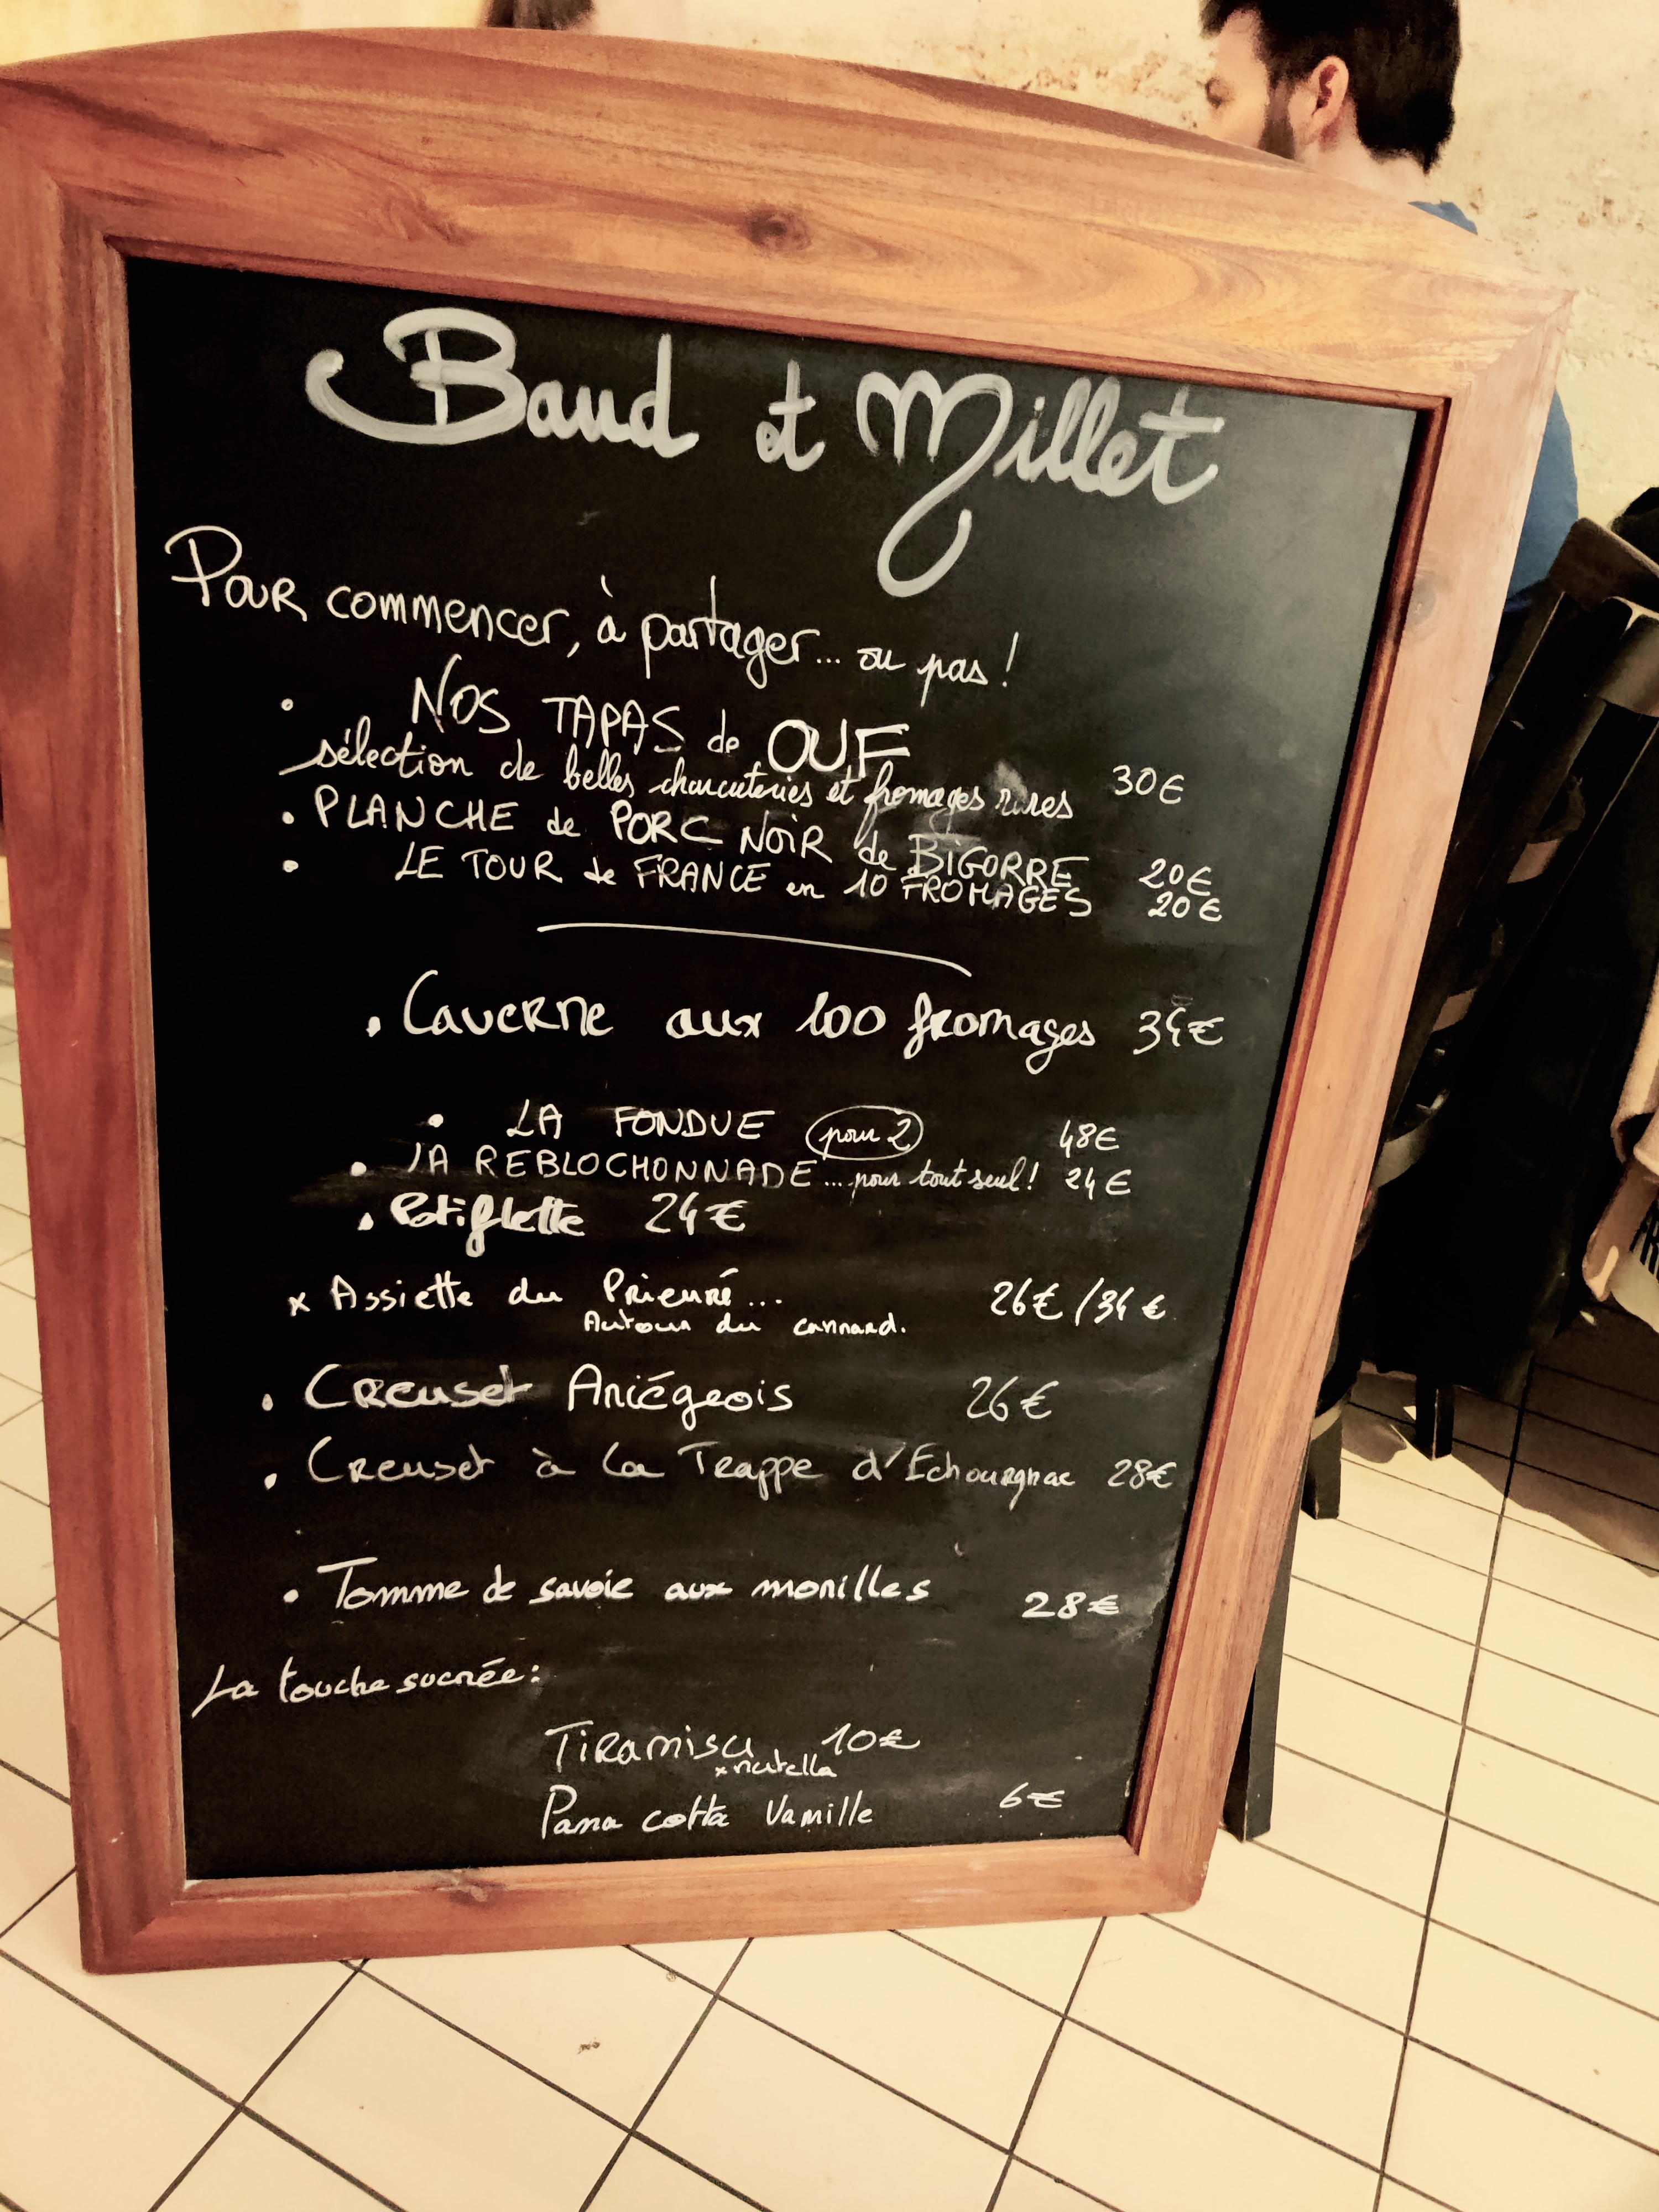 Baud et Millet
Pour commencer, à partager... ou pas !
• NOS TAPAS de OUF
sélection de belles charcuteries et fromages rares 30€
• PLANCHE de PORC NOIR de BIGORRE 20€
• LE TOUR de FRANCE en 10 FROMAGES 20€
• Caverne aux 100 fromages 34€
• LA FONDUE pour 2 48€
• LA REBLOCHONNADE ... pour tout seul ! 24€
• 24€
x Assiette du Prieuré... 26€ / 34€
Autour du cannard.
• Creuset Ariégeois 26€
• Creuset à la Trappe d'Echourgnac 28€
• Tomme de savoie aux morilles 28€
La touche sucrée :
Tiramisu 10€
x nutella
Pana cotta Vanille 6€